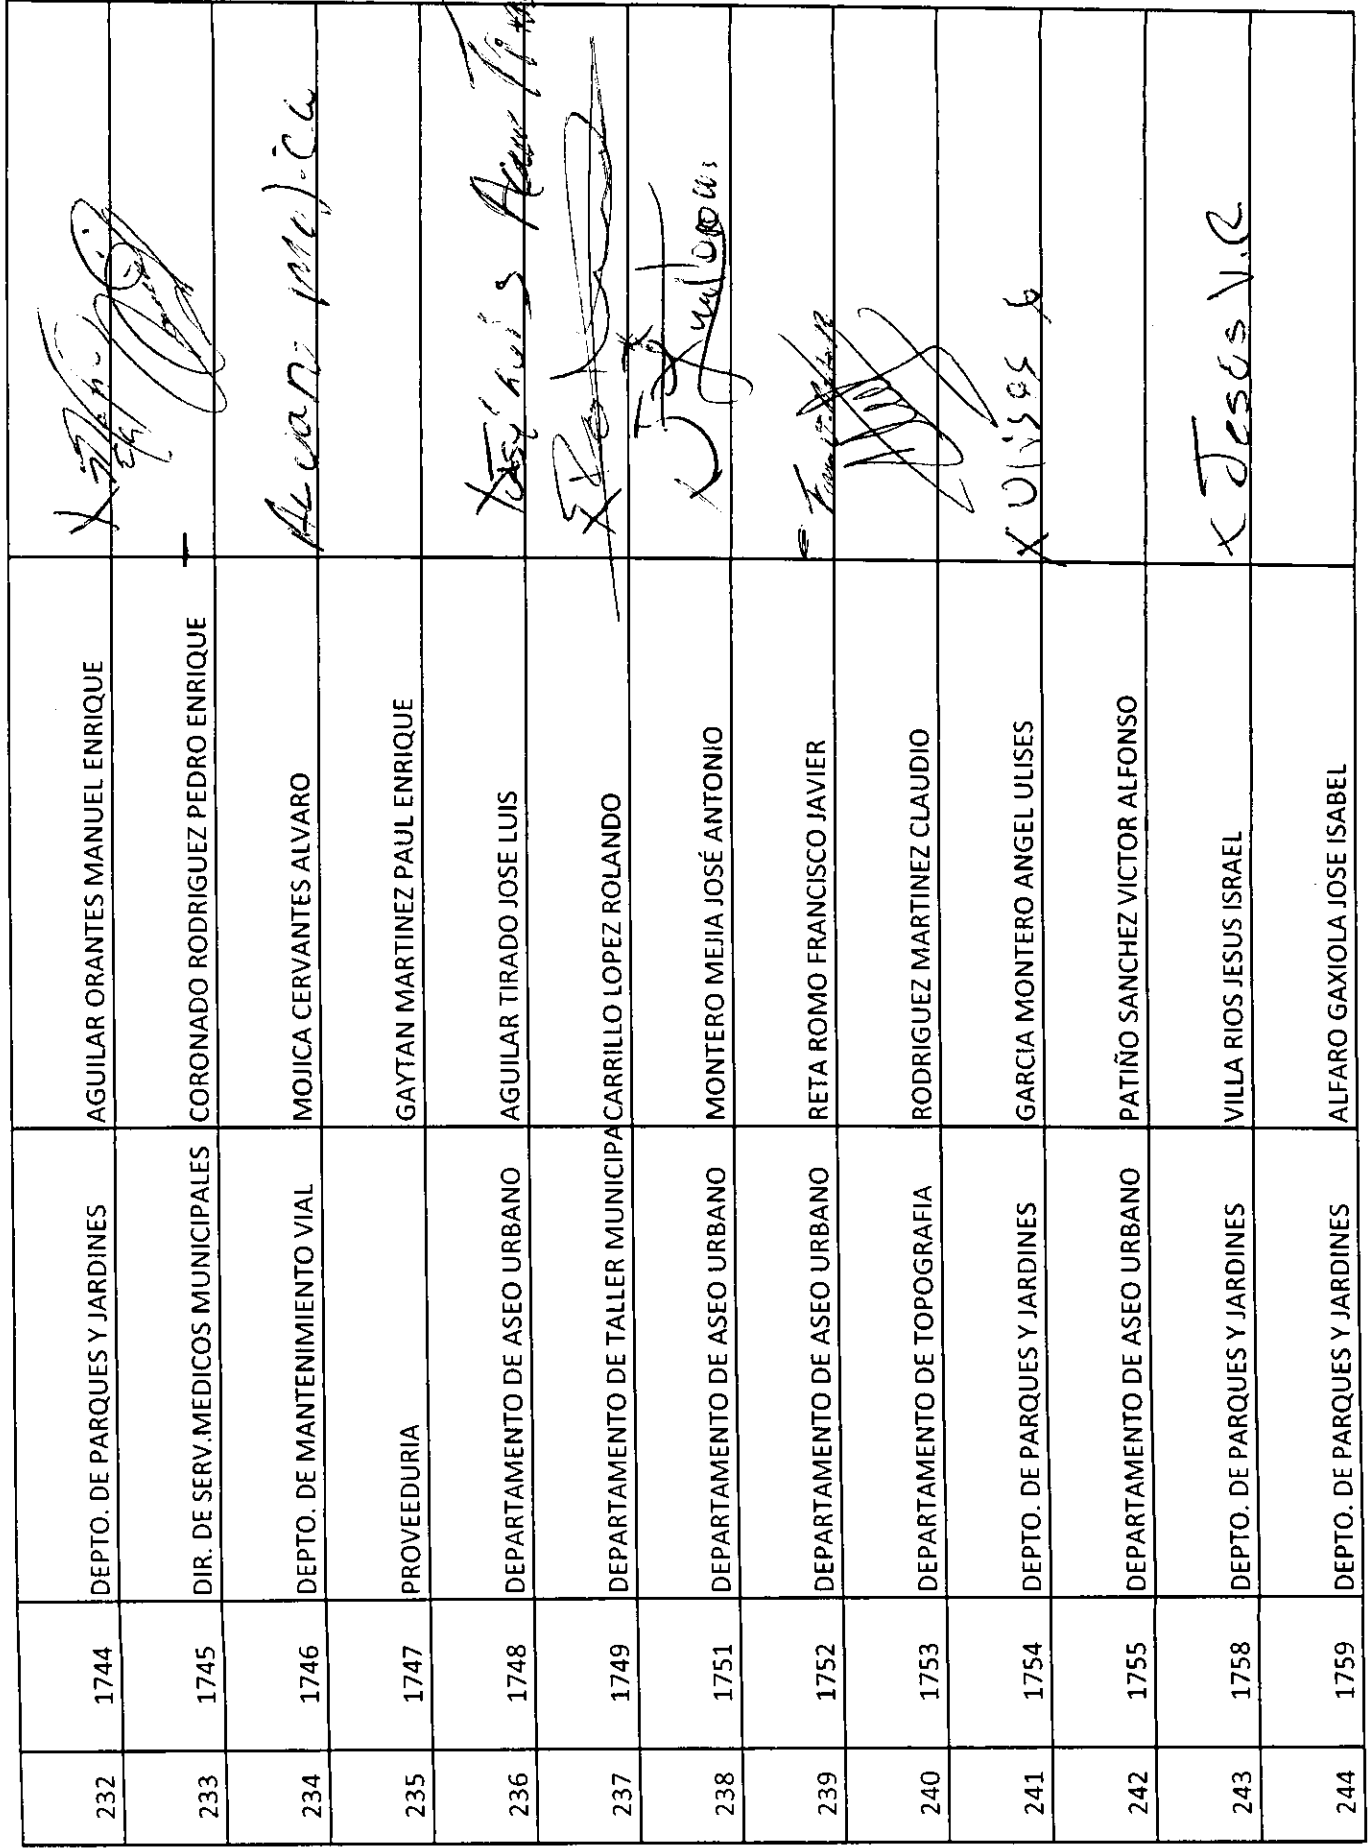 232 1744 DEPTO. DE PARQUES Y JARDINES AGUILAR ORANTES MANUEL ENRIQUE X
233 1745 DIR. DE SERV.MEDICOS MUNICIPALES CORONADO RODRIGUEZ PEDRO ENRIQUE
234 1746 DEPTO. DE MANTENIMIENTO VIAL MOJICA CERVANTES ALVARO
235 1747 PROVEEDURIA GAYTAN MARTINEZ PAUL ENRIQUE
236 1748 DEPARTAMENTO DE ASEO URBANO AGUILAR TIRADO JOSE LUIS X
237 1749 DEPARTAMENTO DE TALLER MUNICIPA CARRILLO LOPEZ ROLANDO X
238 1751 DEPARTAMENTO DE ASEO URBANO MONTERO MEJIA JOSÉ ANTONIO X
239 1752 DEPARTAMENTO DE ASEO URBANO RETA ROMO FRANCISCO JAVIER
240 1753 DEPARTAMENTO DE TOPOGRAFIA RODRIGUEZ MARTINEZ CLAUDIO
241 1754 DEPTO. DE PARQUES Y JARDINES GARCIA MONTERO ANGEL ULISES X Ulises
242 1755 DEPARTAMENTO DE ASEO URBANO PATIÑO SANCHEZ VICTOR ALFONSO
243 1758 DEPTO. DE PARQUES Y JARDINES VILLA RIOS JESUS ISRAEL X Jesus V.R
244 1759 DEPTO. DE PARQUES Y JARDINES ALFARO GAXIOLA JOSE ISABEL